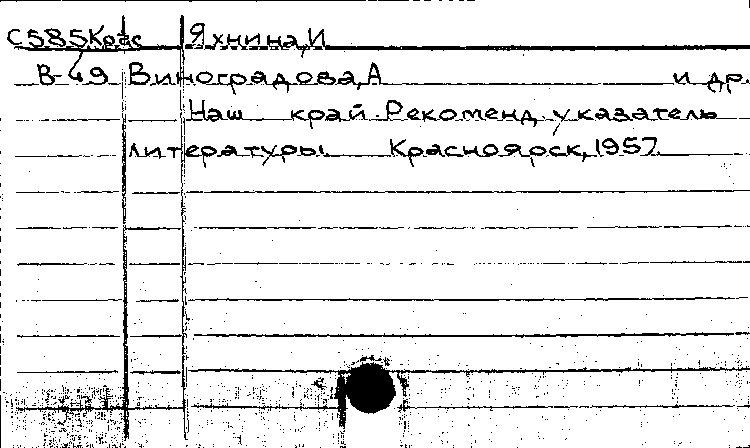 С585Крас Яхнина, И
В-49 Виноградова, А и др.
Наш край. Рекоменд. указатель
литературы. Красноярск, 1957.